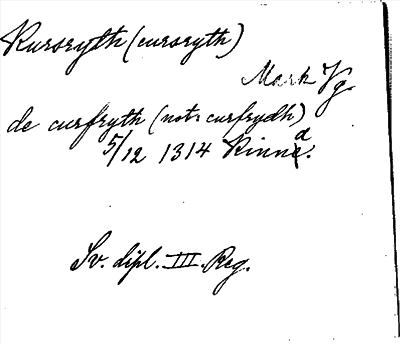 Kursryth (cursryth)
Mark Vg.
de curfryth (not: curfrydh)
5/12 1314 Rinna.
Sv. dipl. III. Reg.